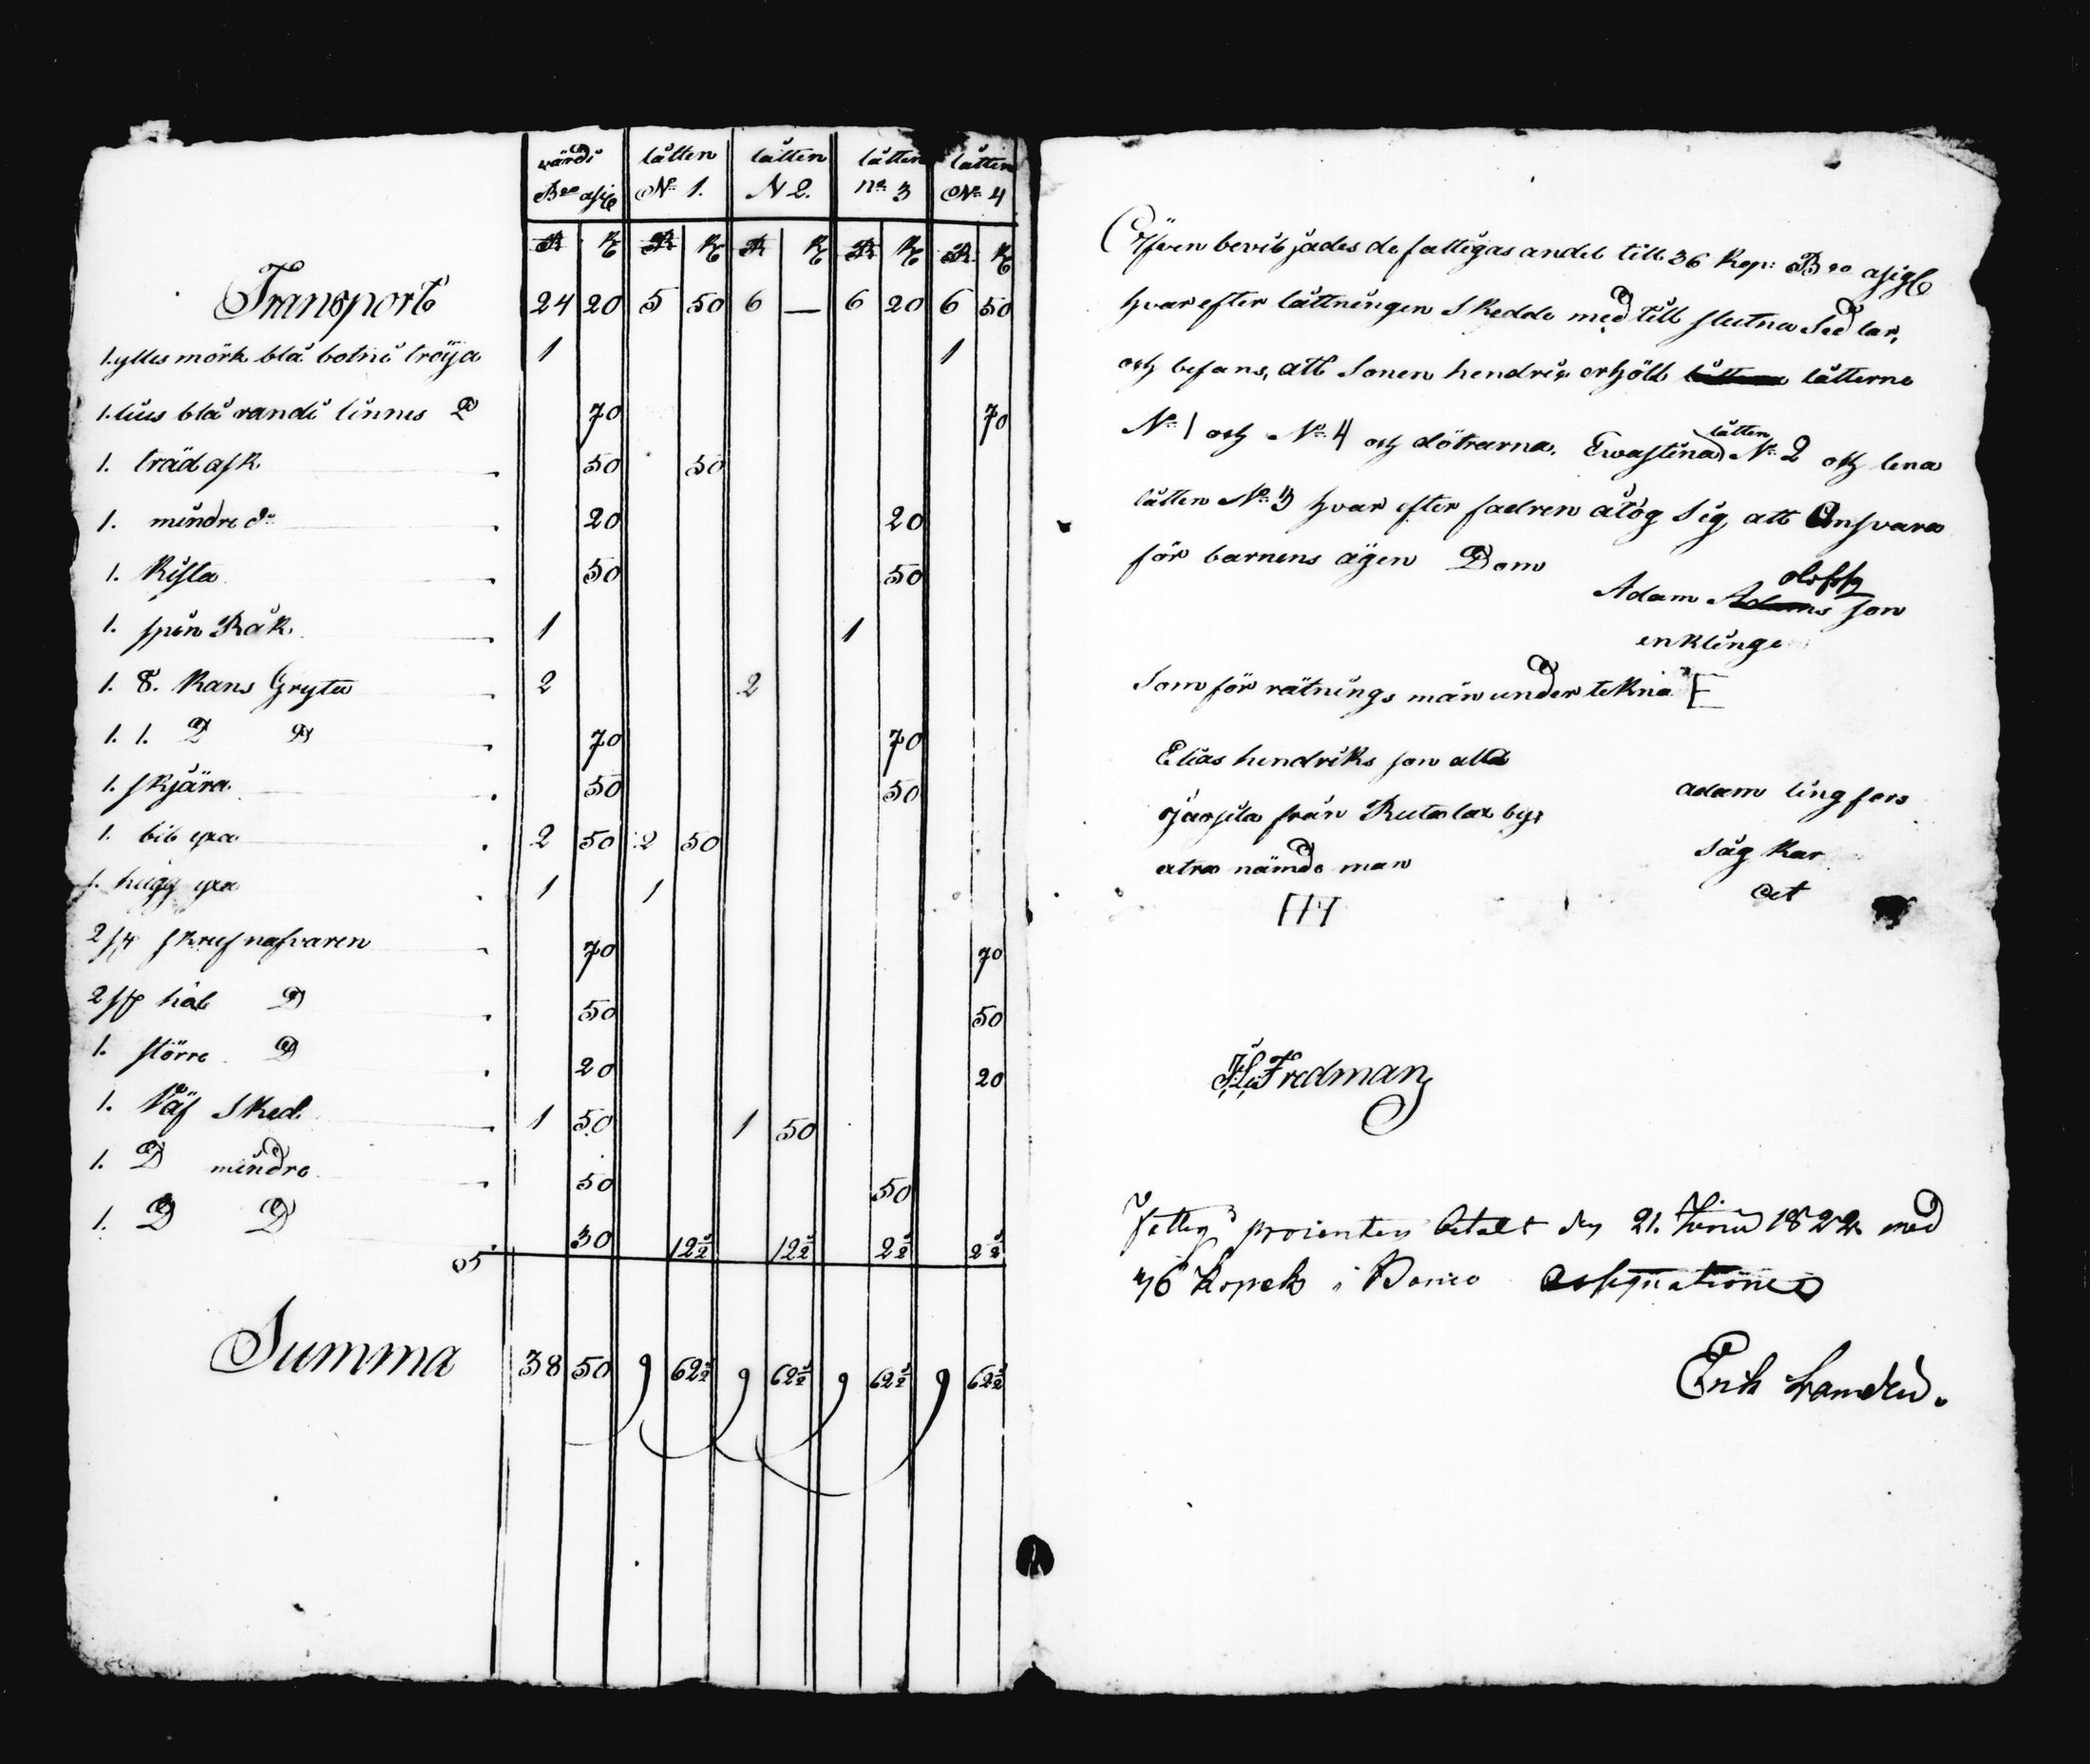 värdi låtten låtten låtten låtten
Bco assig No 1. N 2. no 3 No 4
R K R K R K R K R K
Transport 24 20 5 50 6 — 6 20 6 50
1. ylles mörk blå botni tröija 1 1
1. lius blå randi linnes D 70 70
1. träd ask 50 50
1. mindre do 20 20
1. Kista 50 50
1. spin Råk 1 1
1. 8. Kans Gryta 2 2
1. 1. D D 70 70
1. skjära 50 50
1. bil yxa 2 50 2 50
1. hugg yxa 1 1
2 st skruf nafvaren 70 70
2 st hål D 50 50
1. större D 20 20
1. Väf Sked 1 50 1 50
1. D mindre 50 50
1. D D 30 12½ 12½ 2½ 2½
Summa 38 50 9 62½ 9 62½ 9 62½ 9 62½
Öfven beviljades de fattigas andel till 36 Kop: Bco assig
hvar efter låttningen Skedde med till slutna Sedlar,
och befans, att Sonen hendrix erhölt låtterne
No 1 och No 4 och dötrarna, Ewastina låtten No 2 och lena
låtten No 3 hvar efter fadren åtog Sig att Ansvara
för barnens ägen Dom
Adam Adams olofss son
enklinge
Som för rätnings män under tekna
Elias hendriks son alla
ojarsila från Rutalax by
extra nämde man
adam lingfors
Såg Kar
Oet
Fredman
Fattig procenten betalt den 21. Junii 1822 med
36 Kopek i Banco assignationer
Erik